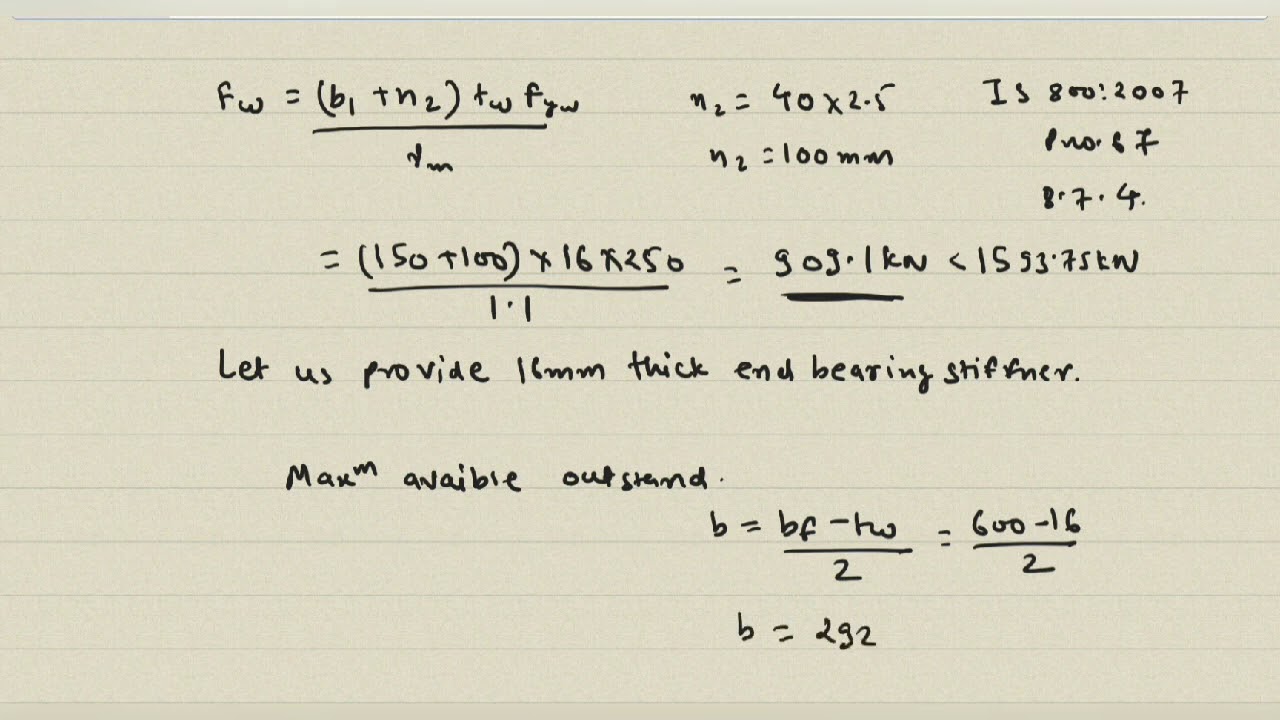 Fw = (b1 + n2) tw fyw / γm
n2 = 40 x 2.5
n2 = 100 mm
IS 800:2007
P.no. 67
8.7.4.
= (150+100) x 16 x 250 / 1.1 = 909.1 kN < 1593.75 kN
Let us provide 16mm thick end bearing stiffner.
Maxm avaible outstand.
b = bf - tw / 2 = 600 - 16 / 2
b = 292